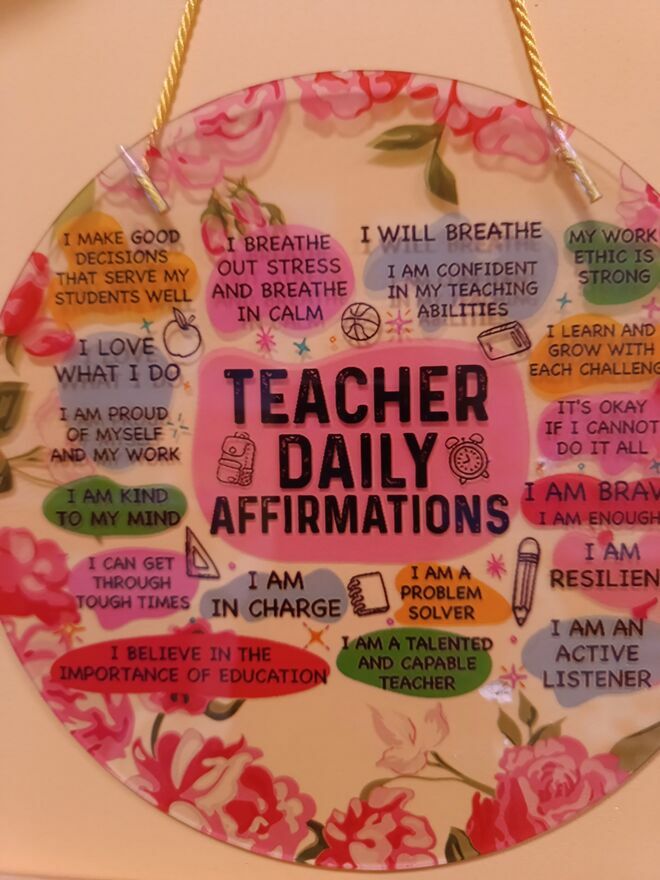 I MAKE GOOD
DECISIONS
THAT SERVE MY
STUDENTS WELL
I BREATHE
OUT STRESS
AND BREATHE
IN CALM
I WILL BREATHE
I AM CONFIDENT
IN MY TEACHING
ABILITIES
MY WORK
ETHIC IS
STRONG
I LOVE
WHAT I DO
I LEARN AND
GROW WITH
EACH CHALLENG
TEACHER
DAILY
AFFIRMATIONS
I AM PROUD
OF MYSELF
AND MY WORK
IT'S OKAY
IF I CANNOT
DO IT ALL
I AM KIND
TO MY MIND
I AM BRAV
I AM ENOUGH
I CAN GET
THROUGH
TOUGH TIMES
I AM
IN CHARGE
I AM A
PROBLEM
SOLVER
I AM
RESILIEN
I BELIEVE IN THE
IMPORTANCE OF EDUCATION
I AM A TALENTED
AND CAPABLE
TEACHER
I AM AN
ACTIVE
LISTENER